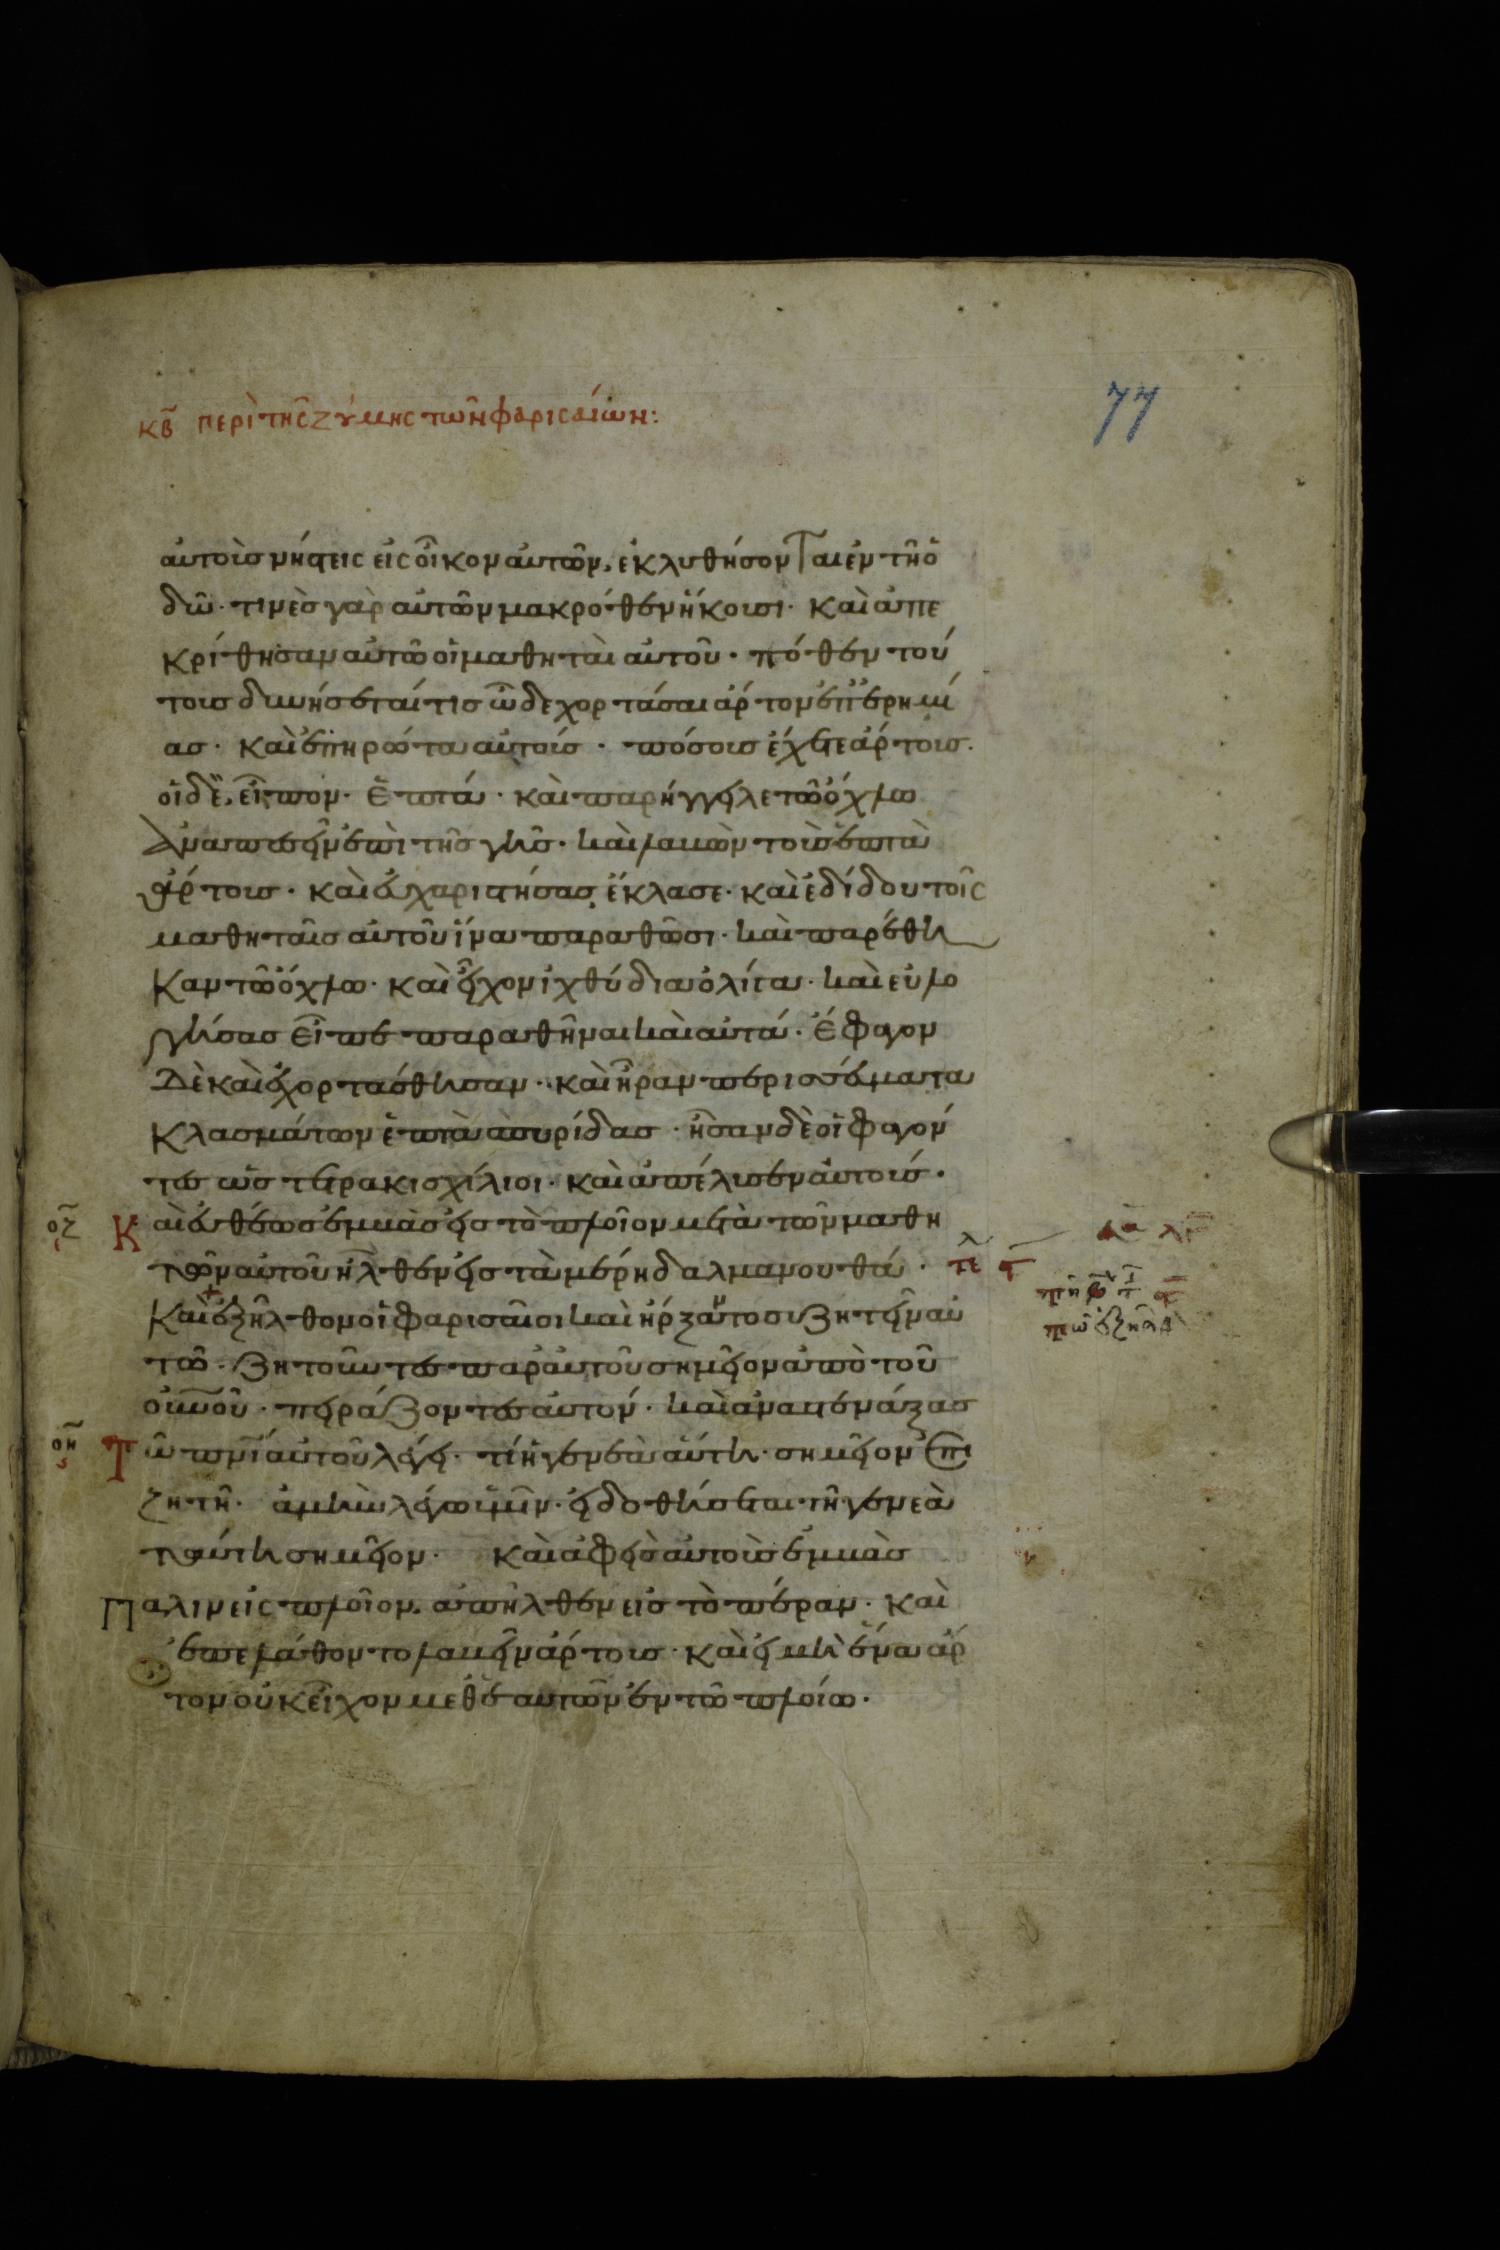 κβ περὶ τῆς ζύμης τῶν φαρισαίων:
77
αὐτοὺς νήστεις εἰς οἶκον αὐτῶν, ἐκλυθήσονται ἐν τῆ ὁ
δῶ· τινὲς γὰρ αὐτῶν μακρόθεν ἥκουσι· καὶ ἀπε
κρίθησαν αὐτῶ οἱ μαθηταὶ αὐτοῦ· πόθεν τού
τους δυνήσεταί τις ὧδε χορτάσαι ἄρτον ἐπ ἐρημί
ας· καὶ ἐπηρώτα αὐτούς· πόσους ἔχετε ἄρτους·
οἱ δὲ, εἶπον· ἑπτά· καὶ παρήγγειλε τῶ ὄχλω
ἀναπεσεῖν ἐπὶ τῆς γῆς· καὶ λαβὼν τοὺς ἑπτὰ
ἄρτους· καὶ εὐχαριστήσας, ἔκλασε· καὶ ἐδίδου τοῖς
μαθηταῖς αὐτοῦ ἵνα παραθῶσι· καὶ παρέθη
καν τῶ ὄχλω· καὶ εἶχον ἰχθύδια ὀλίγα· καὶ εὐλο
γήσας εἶπε παραθῆναι καὶ αὐτά· ἔφαγον
δὲ καὶ ἐχορτάσθησαν· καὶ ἦραν περισσεύματα
κλασμάτων ἑπτὰ σπυρίδας· ἦσαν δὲ οἱ φαγόν
τες ὡς τετρακισχίλιοι· καὶ ἀπέλυσεν αὐτούς·
οζ Καὶ εὐθέως ἐμβὰς εἰς τὸ πλοῖον μετὰ τῶν μαθη
τῶν αὐτοῦ ἦλθεν εἰς τὰ μέρη δαλμανουθά· τελ
καὶ ἐξῆλθον οἱ φαρισαῖοι καὶ ἤρξαντο συζητεῖν αὐ
τῶ· ζητοῦντες παρ αὐτοῦ σημεῖον ἀπὸ τοῦ
οὐνοῦ· πειράζοντες αὐτόν· καὶ ἀναστενάξας
οη Τῶ πνι αὐτοῦ λέγει· τί ἡ γενεὰ αὕτη· σημεῖον ἐπι
ζητῆ· ἀμὴν λέγω ὑμῖν· εἰ δοθήσεται τῆ γενεὰ
ταύτη σημεῖον· καὶ ἀφεὶς αὐτοὺς ἐμβὰς
πάλιν εἰς πλοῖον, ἀπῆλθεν εἰς τὸ πέραν· καὶ
ἐπελάθοντο λαβεῖν ἄρτους· καὶ εἰ μὴ ἕνα ἄρ
τον οὐκ εἶχον μεθ ἑαυτῶν ἐν τῶ πλοίω·